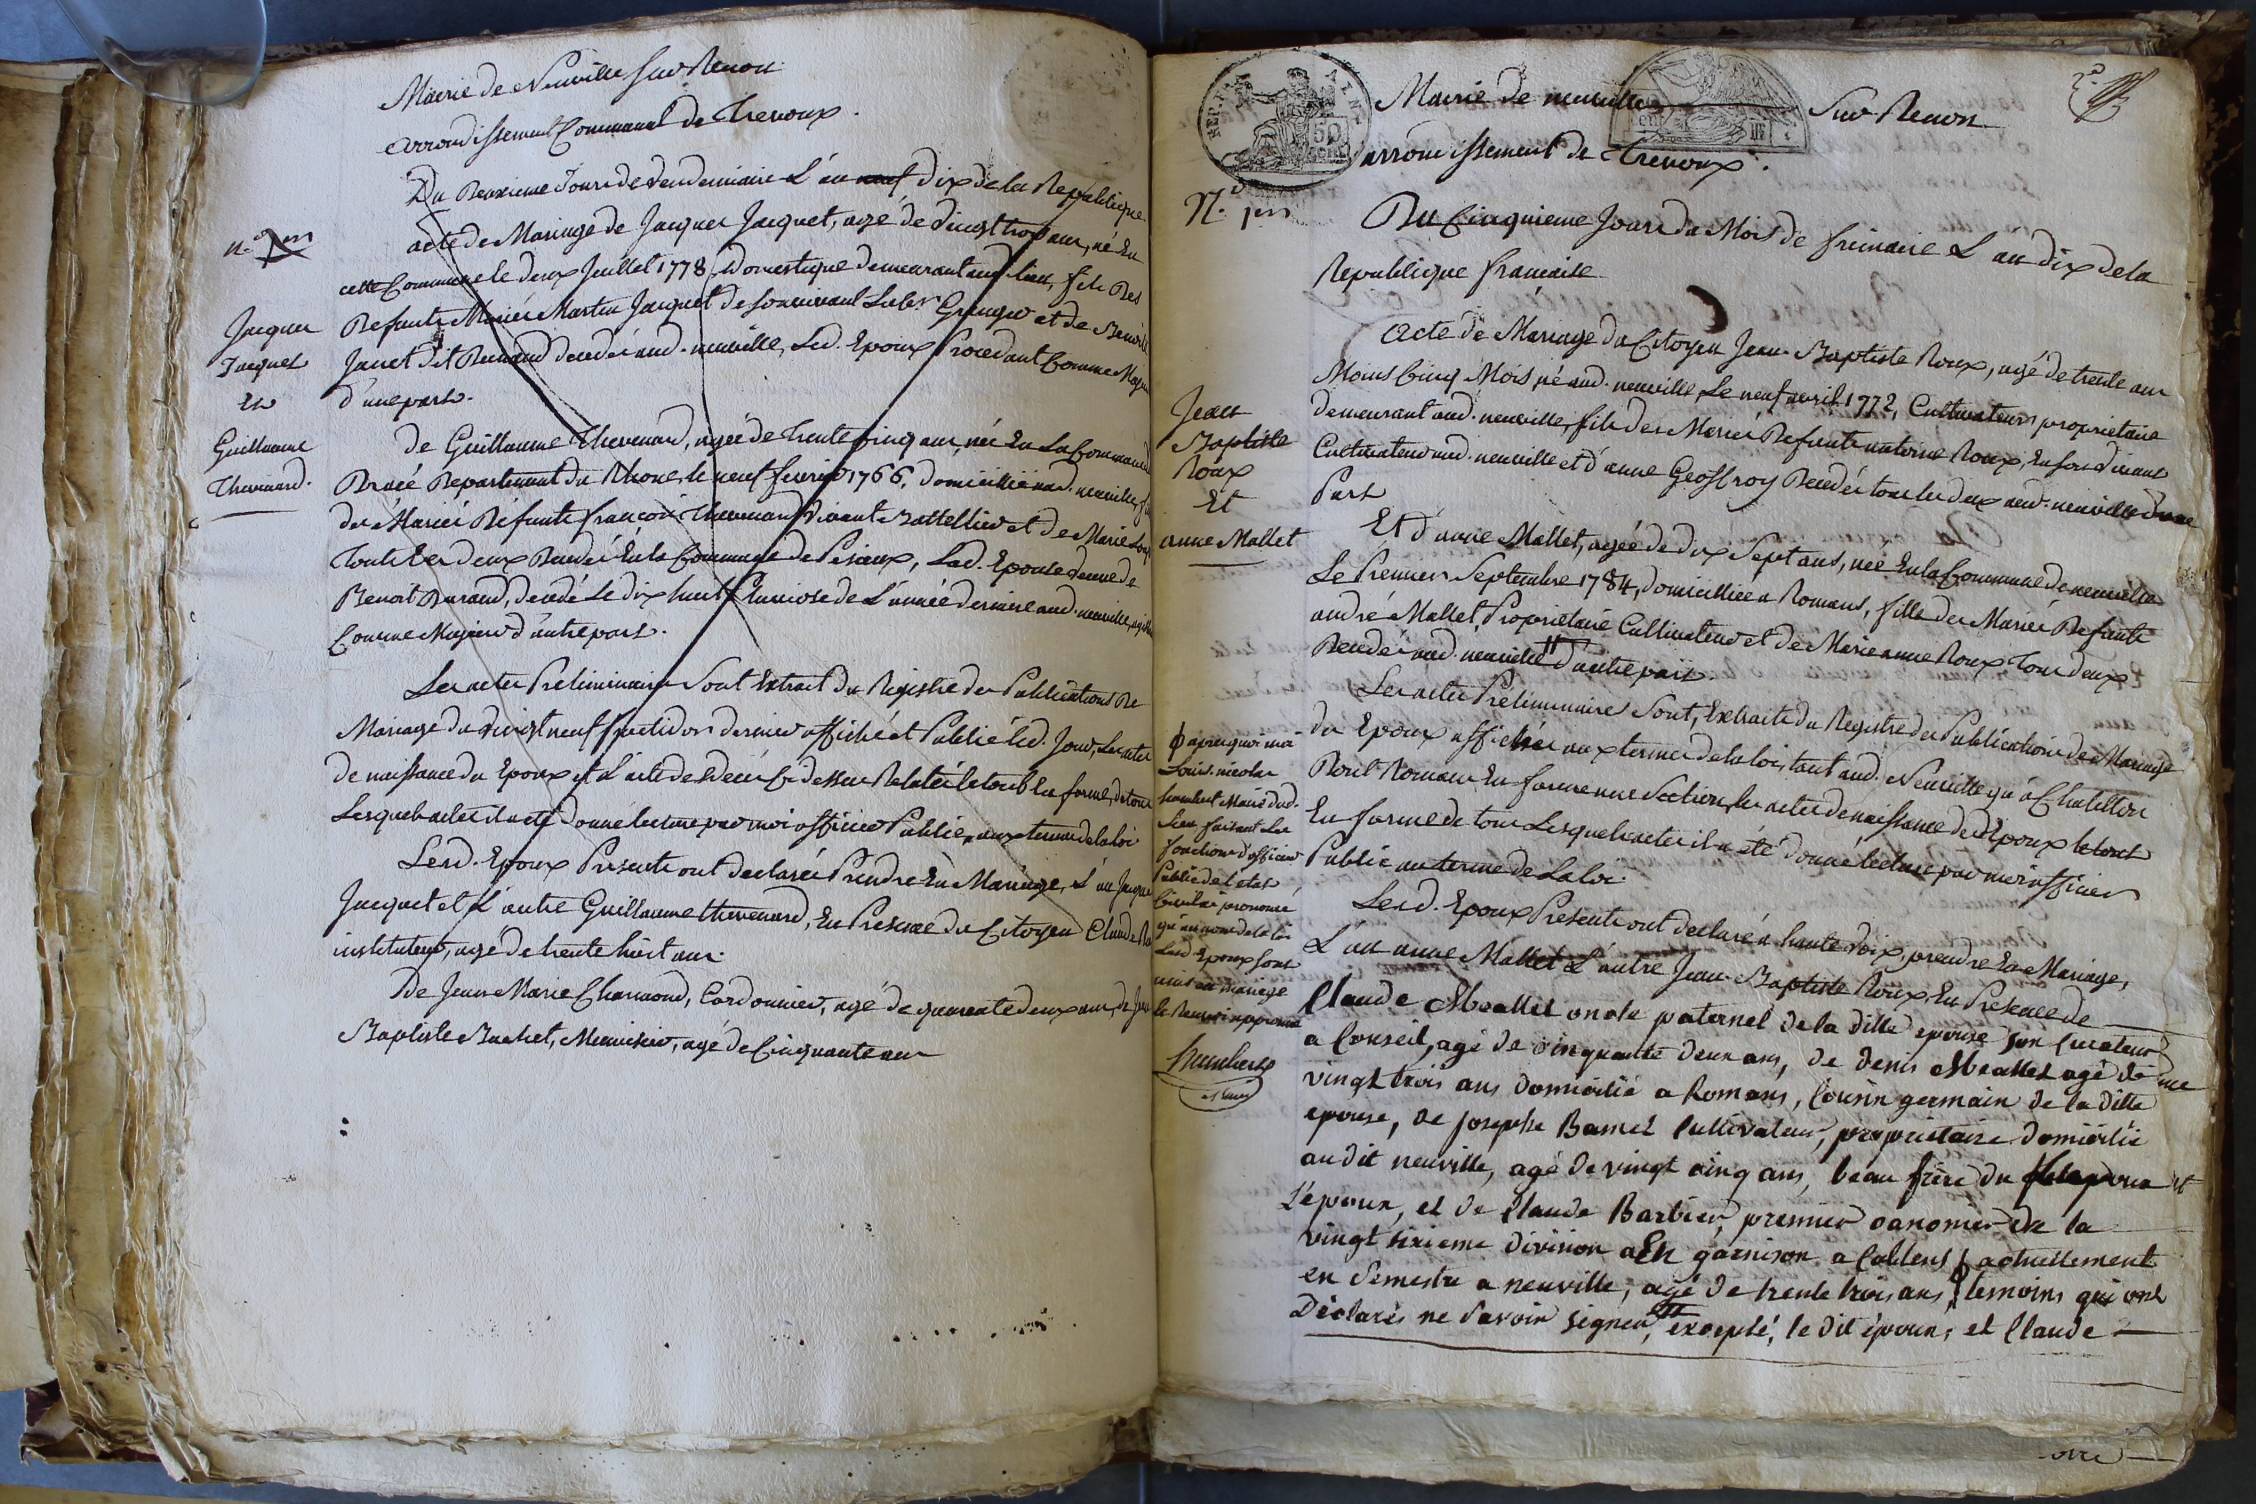 Mairie de Neuville sur Renon
arrondissement Communal de Trevoux.
Du Deuxieme Jour de Vendemiaire L'an neuf dix de la Republique
n.º 1er
acte de Mariage de Jacques Jacquet, agé de vingt trois ans, né En
cette Commune le deux Juillet 1778, Domestique demeurant aud. lieu, fils Des
Jacques
Jacquet
Et
Guillaume
Thevenard.
Defunts Mariés Martin Jacquet de son vivant Granger et de Benoite
Janet dit Renaud decedés aud. neuville, Led. Epoux Procedant Comme Majeur
d'une part.
de Guillaume Thevenard, agée de Trente cinq ans, née En La Commune de
Departement du Rhone, le neuf fevrier 1766, domiciliée aud. neuville, fille
des Mariés Defunts françois Thevenard vivant Battellier et de Marie
Touts Les deux Decedés En la Commune de Perieux, Lad. Epouse veuve de
Benoit Durand, decedé Le dix huit Pluviose de L'année derniere aud. neuville, agissant
Comme Majeur d'autre part.
Les actes Preliminaires Sont Extrait du Registre des Publications De
Mariage du vingt neuf fructidor dernier affiché et Publié led. Jour, Les actes
de naissance des Epoux et L'acte de deces Ci dessus Relatés le tout En forme, de tous
Lesquels actes il a eté donné lecture par moi officier Public, aux termes de la loi
Lesd. Epoux Presents ont declarés Prendre En Mariage, L'un Jacques
Jacquet et L'autre Guillaume thevenard, En Presence du Citoyen Claude
instituteur, agé de trente huit ans.
De Jean Marie Charnoud, Cordonnier, agé de quarante deux ans, de Jean
Baptiste Buchet, Menuisier, agé de Cinquante ans
Mairie de neuville sur Renon
arrondissement de Trevoux.
N.º 1er
Du Cinquieme Jour du Mois de frimaire L'an dix de la
Republique française
Acte de Mariage du Citoyen Jean-Baptiste Roux, agé de trente ans
Moins Cinq Mois, né aud. neuville Le neuf avril 1772, Cultivateur proprietaire
demeurant aud. neuville, fils des Mariés Defunts antoine Roux, En son vivant
Cultivateur aud. neuville et d'anne Geoffroy Decedés tous les deux aud. neuville d'une
Part
Jean
Baptiste
Roux
Et
anne Mallet
Et d'anne Mallet, agée de dix Sept ans, née En la Commune de neuville
Le Premier Septembre 1784, domiciliée a Romans, fille des Mariés Defunts
andré Mallet, Proprietaire Cultivateur et de Marie anne Roux Tous deux
Decedés aud. neuville d'autre part.
Les actes Preliminaires Sont, Extraits du Registre des Publications de Mariage
des Epoux affichés aux termes de la loi, tant aud. Neuville qu'à Chatillon
Dont Romans En forme une Section, les actes de naissance des Epoux le tout
En forme de tous Lesquels actes il a été donné lecture par moi officier
Public au terme de La loi.
Lesd. Epoux Presents ont declaré a haute Voix, prendre En Mariage,
L'un anne Mallet L'autre Jean-Baptiste Roux, En Presence de
Claude Meallet oncle paternel de la ditte epouse son curateur
a Conseil, agé de cinquante deux ans, de denis Meallet agé de
vingt trois ans domicilié a Romans, Cousin germain de la ditte
epouse, de josephe Bamet Cultivateur, proprietaire domicilié
au dit neuville, agé de vingt cinq ans, beau frère du
L'époux, et de Claude Barbier, premier canonier de la
vingt sixieme division en garnison a Coblens actuellement
en Semestre a neuville, agé de trente trois ans, temoins qui ont
Déclarés ne savoir signer, excepté, le dit époux, et Claude
ϕ apres quoi moi
Louis nicolas
humbert Maire dud.
Lieu faisant Les
fonctions d'officier
Public de l'etat
Civil ai prononcé
qu'au nom de la loi
Lesd. Epoux Sont
unis en mariage
le Renvoi approuvé
humbert